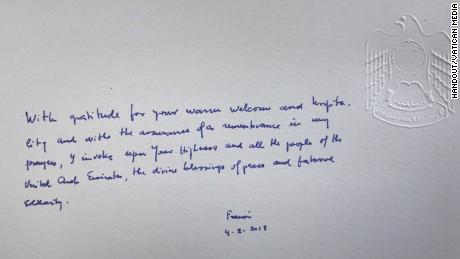 With gratitude for your warm welcome and hospita-
lity and with the assurance of a remembrance in my
prayers, I invoke upon Your Highness and all the people of the
United Arab Emirates, the divine blessings of peace and fraternal
solidarity.
4.2.2019
HANDOUT/VATICAN MEDIA